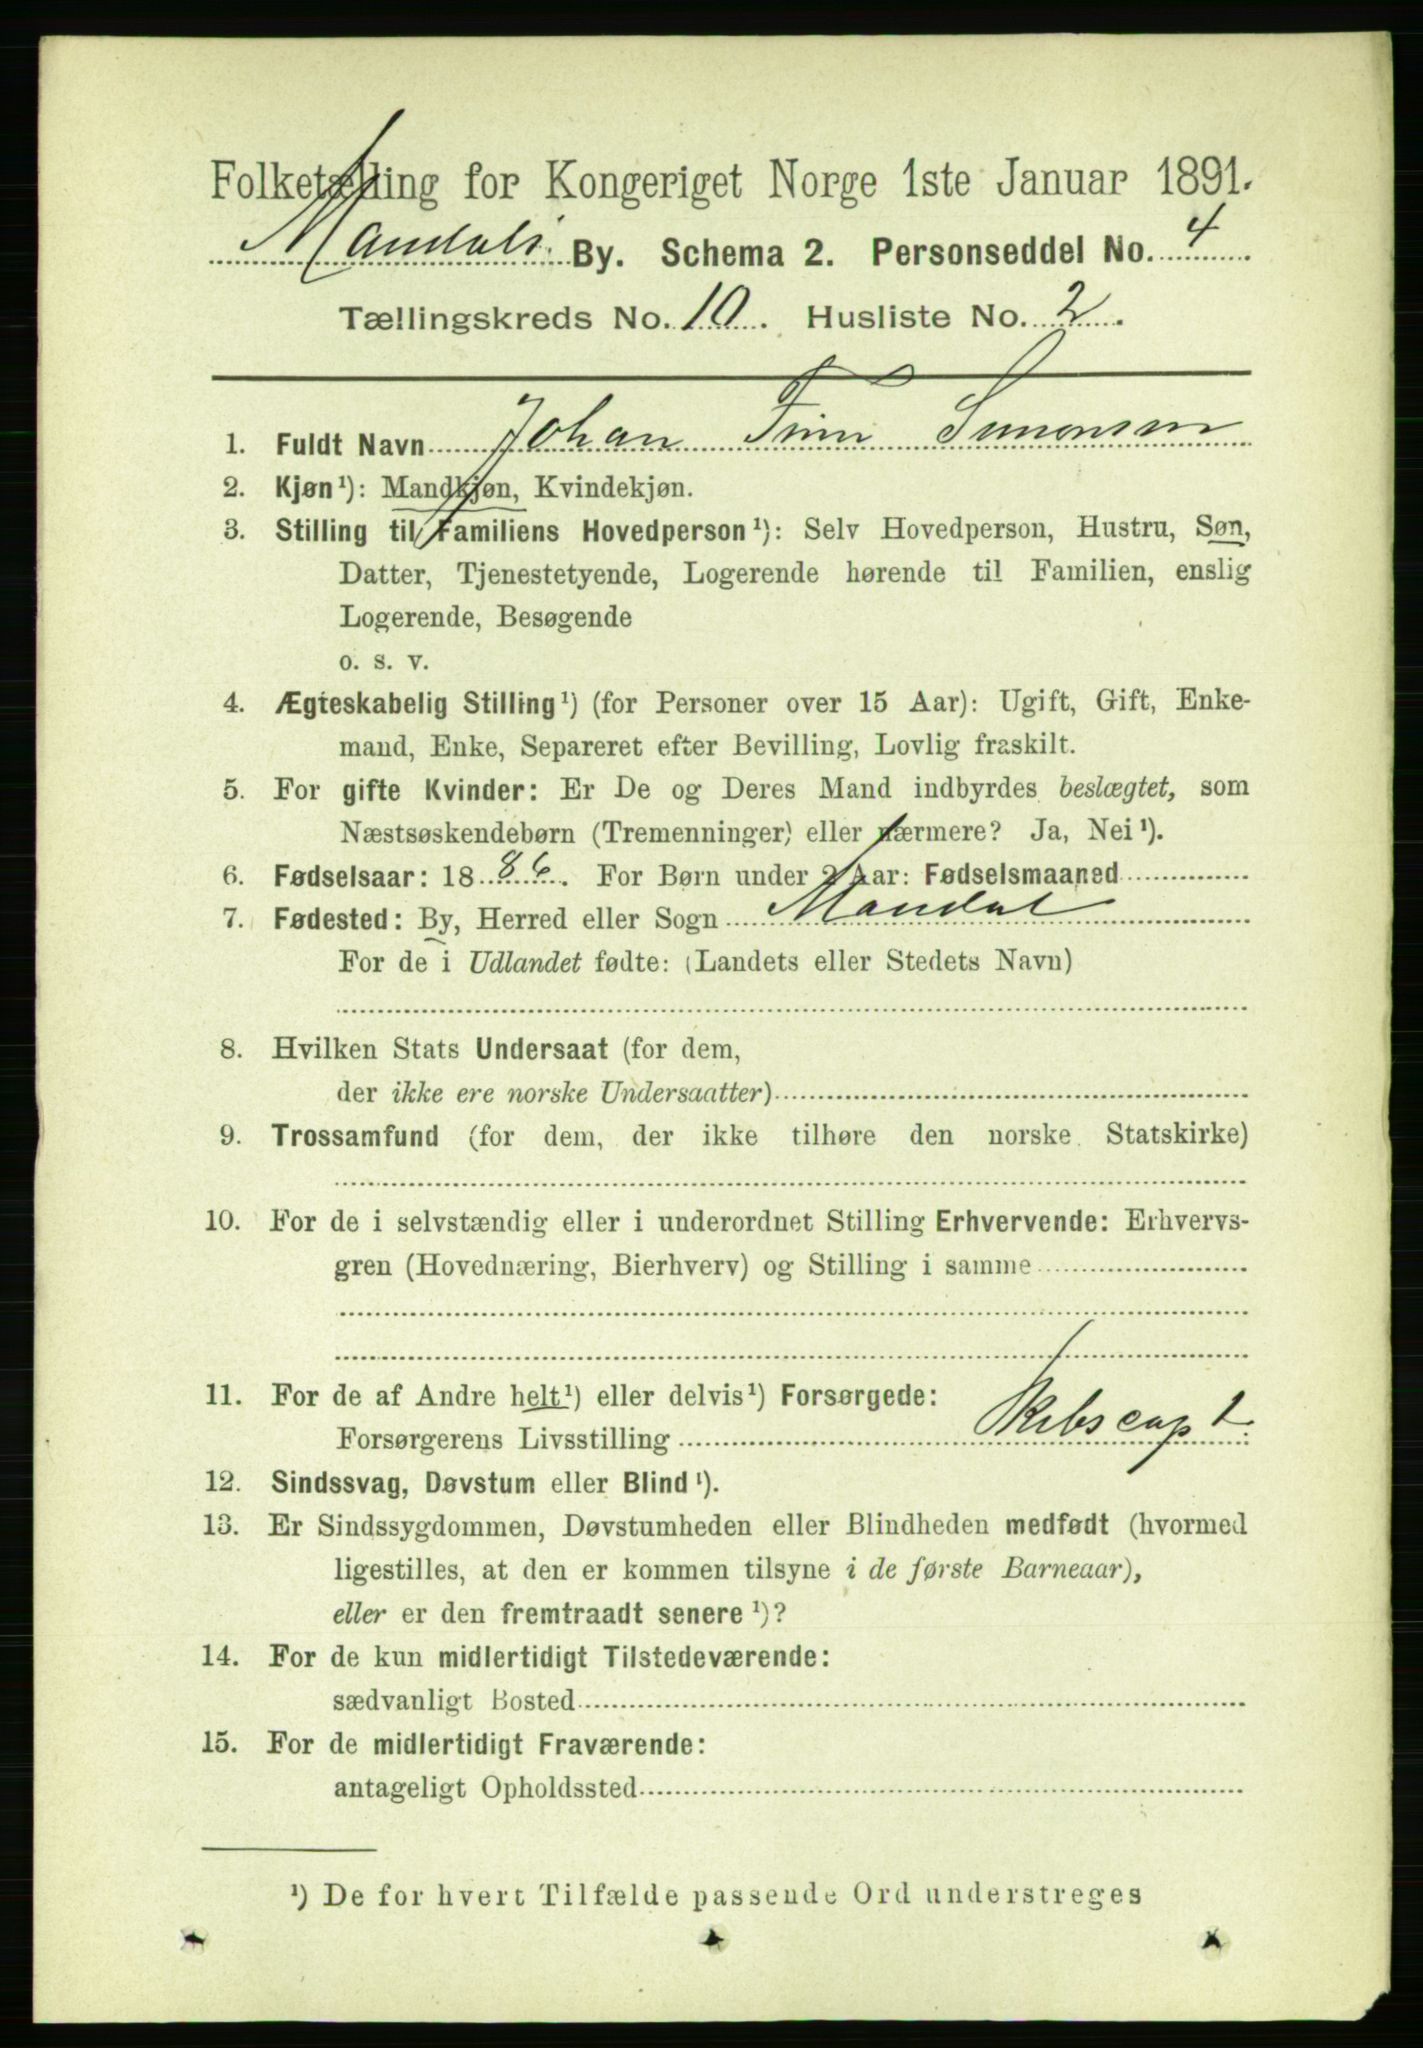 Folketælling for Kongeriget Norge 1ste Januar 1891.
Mandals By. Schema 2. Personseddel No. 4
Tællingskreds No. 10. Husliste No. 2.
1. Fuldt Navn Johan Finn Simonsen
2. Kjøn¹): Mandkjøn, Kvindekjøn.
3. Stilling til Familiens Hovedperson¹): Selv Hovedperson, Hustru, Søn,
Datter, Tjenestetyende, Logerende hørende til Familien, enslig
Logerende, Besøgende
o. s. v.
4. Ægteskabelig Stilling¹) (for Personer over 15 Aar): Ugift, Gift, Enke-
mand, Enke, Separeret efter Bevilling, Lovlig fraskilt.
5. For gifte Kvinder: Er De og Deres Mand indbyrdes beslægtet, som
Næstsøskendebørn (Tremenninger) eller nærmere? Ja, Nei¹).
6. Fødselsaar: 1886. For Børn under 2 Aar: Fødselsmaaned
7. Fødested: By, Herred eller Sogn Mandal
For de i Udlandet fødte: (Landets eller Stedets Navn)
8. Hvilken Stats Undersaat (for dem,
der ikke ere norske Undersaatter)
9. Trossamfund (for dem, der ikke tilhøre den norske Statskirke)
10. For de i selvstændig eller i underordnet Stilling Erhvervende: Erhvervs-
gren (Hovednæring, Bierhverv) og Stilling i samme
11. For de af Andre helt¹) eller delvis¹) Forsørgede:
Forsørgerens Livsstilling Skibscapt.
12. Sindssvag, Døvstum eller Blind¹).
13. Er Sindssygdommen, Døvstumheden eller Blindheden medfødt (hvormed
ligestilles, at den er kommen tilsyne i de første Barneaar),
eller er den fremtraadt senere¹)?
14. For de kun midlertidigt Tilstedeværende:
sædvanligt Bosted
15. For de midlertidigt Fraværende:
antageligt Opholdssted
¹) De for hvert Tilfælde passende Ord understreges